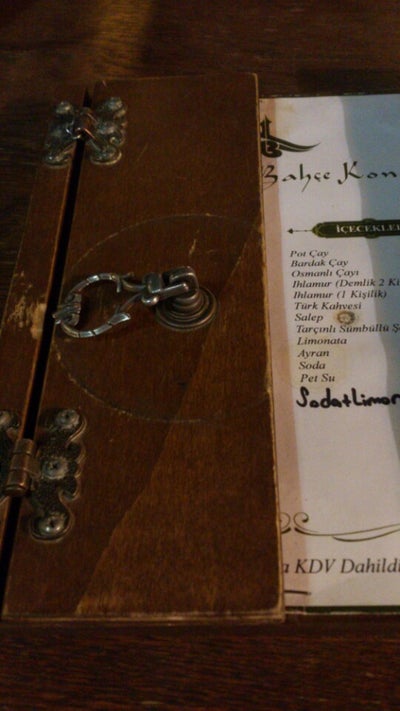 Bahçe Kon
İÇECEKLE
Pot Çay
Bardak Çay
Osmanlı Çayı
Ihlamur (Demlik 2 Ki
Ihlamur (1 Kişilik)
Türk Kahvesi
Salep
Tarçınlı Sümbüllü
Limonata
Ayran
Soda
Pet Su
Soda+Limon
a KDV Dahildi